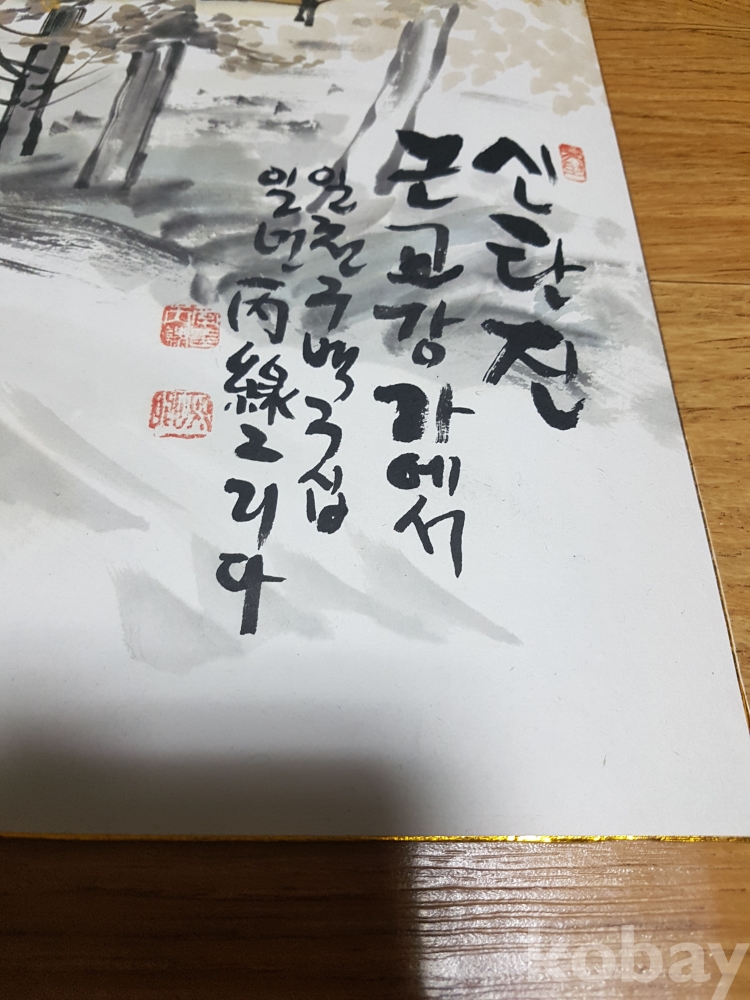 신탄진
근교강가에서
일천구백구십
일년 丙綠그리다
kobay